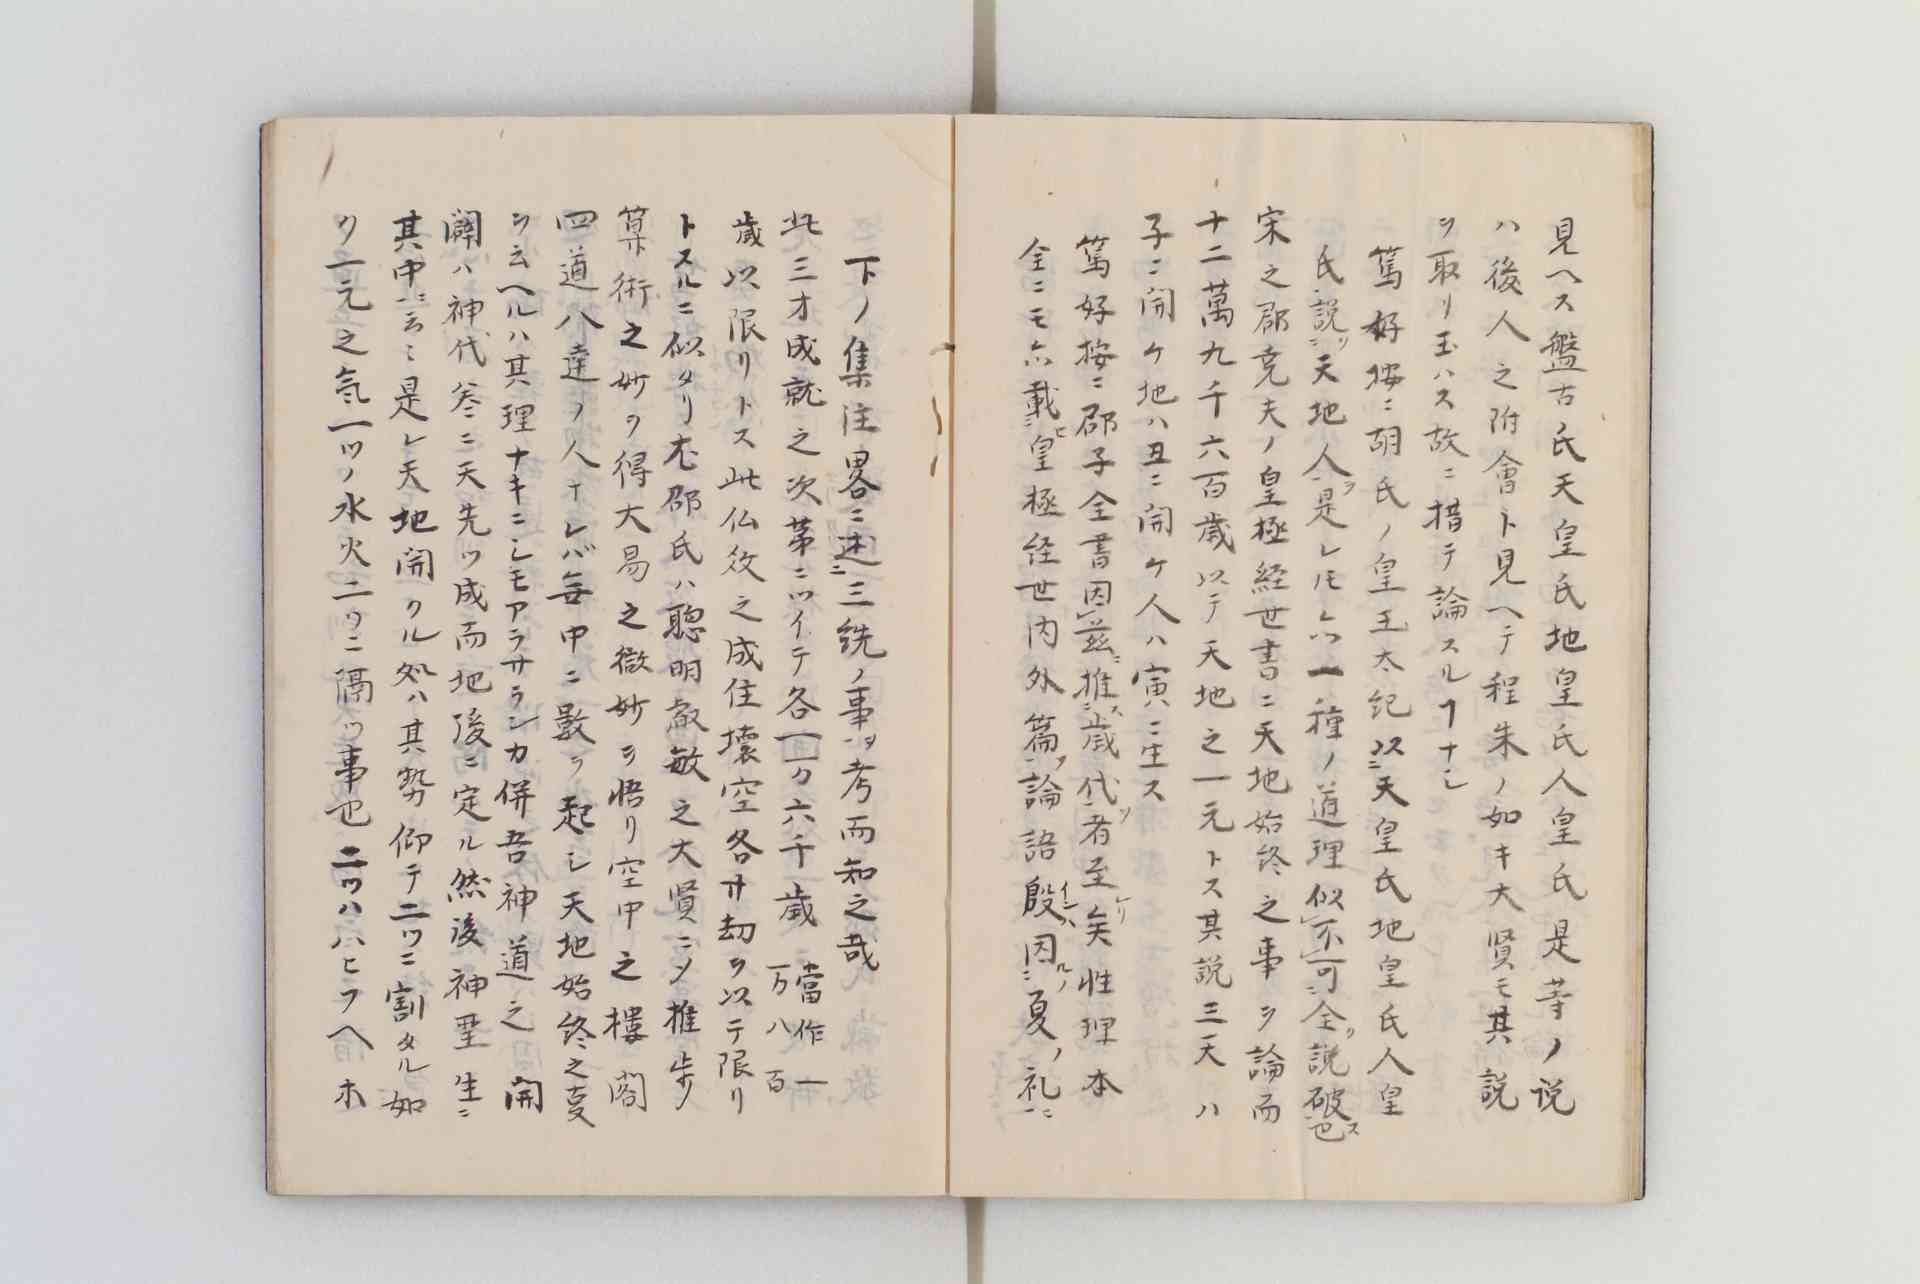 見ヘス盤古氏天皇氏地皇氏人皇氏是等ノ说
ハ後人之附會ト見ヘテ程朱ノ如キ大賢モ其説
ヲ取リ玉ハス故ニ措テ論スルヿナシ
篤好按ニ胡氏ノ皇王太紀以天皇氏地皇氏人皇
氏説天地人是レモ亦一種ノ道理似不可全説破也
宋之邵尭夫ノ皇極経世書ニ天地始終之事ヲ論而
十二萬九千六百歳以テ天地之一元トス其説三天ハ
子ニ開ケ地ハ丑ニ開ケ人ハ寅ニ生ス
篤好按ニ邵子全書因茲推歳代者至矣性理本
全ニモ亦載皇極経世内外篇論語殷因夏ノ礼ニ
下ノ集注畧ニ述三統ノ事ヲ考而知之哉
此三才成就之次第ニツイテ各一万六千歳 當作一万八百
歳以限リトス此仏教之成住壊空各廿劫ヲ以テ限リ
トスルニ似タリ尤邵氏ハ聰明叡敏之大賢ニメ推歩
算術之妙ヲ得大易之微妙ヲ悟リ空中之樓閣
四道八達ノ人ナレバ無中ニ数ヲ起シ天地始終之変
ヲ云ヘルハ其理ナキニシモアラサランカ併吾神道之開
闢ハ神代巻ニ天先ツ成而地後ニ定ル然後神聖生ニ
其中ニ云ニ是レ天地開クル処ハ其勢仰テ二ツニ割タル如
ク一元之氣一ツノ水火二ツニ隔ツ事也二ツハハヒフヘホ